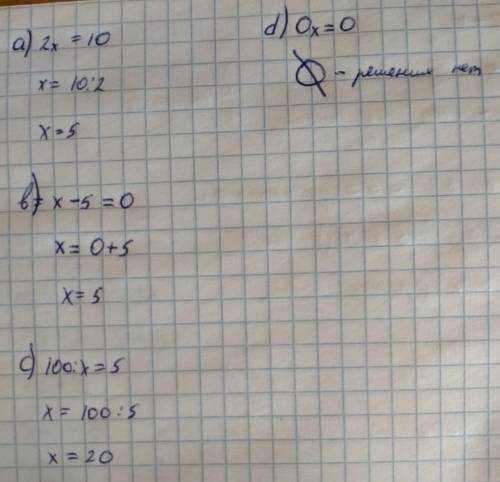 a) 2x = 10
x = 10:2
x = 5
b) x - 5 = 0
x = 0+5
x = 5
c) 100:x = 5
x = 100:5
x = 20
d) 0x = 0
∅ - решения нет